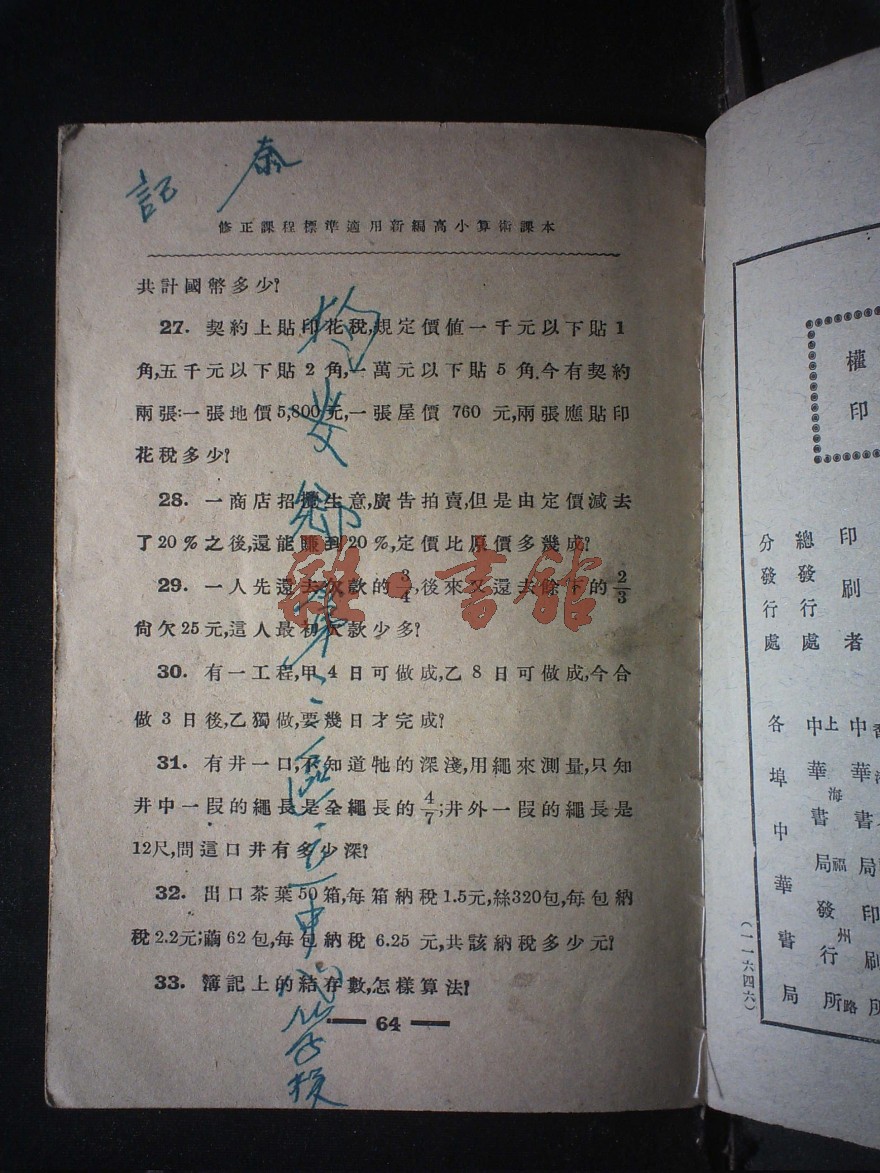 記 泰
修正課程標準適用新編高小算術課本
共計國幣多少?
27. 契約上貼印花稅,規定價值一千元以下貼1
角,五千元以下貼2角,一萬元以下貼5角.今有契約
兩張:一張地價5,800元,一張屋價760元,兩張應貼印
花稅多少?
28. 一商店招攬生意,廣告拍賣,但是由定價減去
了20%之後,還能賺到20%,定價比原價多幾成?
29. 一人先還去欠款的3/4,後來又還去餘下的2/3
尙欠25元,這人最初欠款少多?
30. 有一工程,甲4日可做成,乙8日可做成,今合
做3日後,乙獨做,要幾日才完成?
31. 有井一口,不知道牠的深淺,用繩來測量,只知
井中一段的繩長是全繩長的4/7;井外一段的繩長是
12尺,問這口井有多少深?
32. 出口茶葉50箱,每箱納稅1.5元,絲320包,每包納
稅2.2元;繭62包,每包納稅6.25元,共該納稅多少元?
33. 簿記上的結存數,怎樣算法?
64
鄉第二區立中心學校
雜·書館
權
印
印刷者
總發行處
分發行處
中華書局印刷所
上海福州路
中華書局發行所
各埠中華書局
(一一六四六)